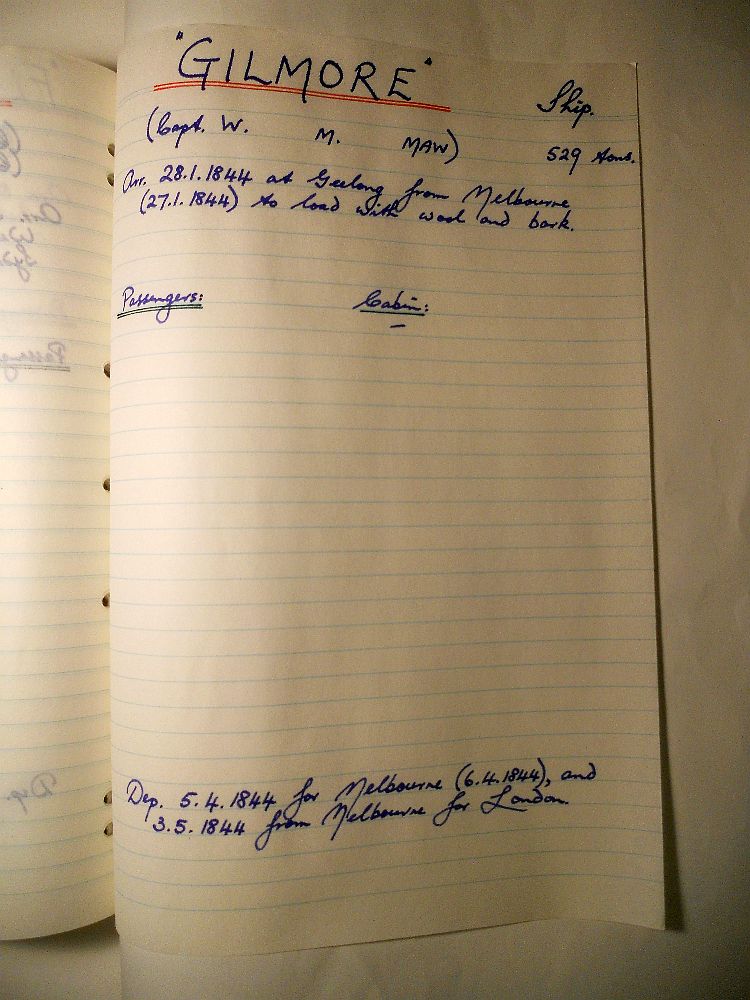 "GILMORE"
Ship.
(Capt. W. M. MAW)
529 tons.
Arr. 28.1.1844 at Geelong from Melbourne
(27.1.1844) to load with wool and bark.
Passengers: Cabin:
—
Dep. 5.4.1844 for Melbourne (6.4.1844), and
3.5.1844 from Melbourne for London.